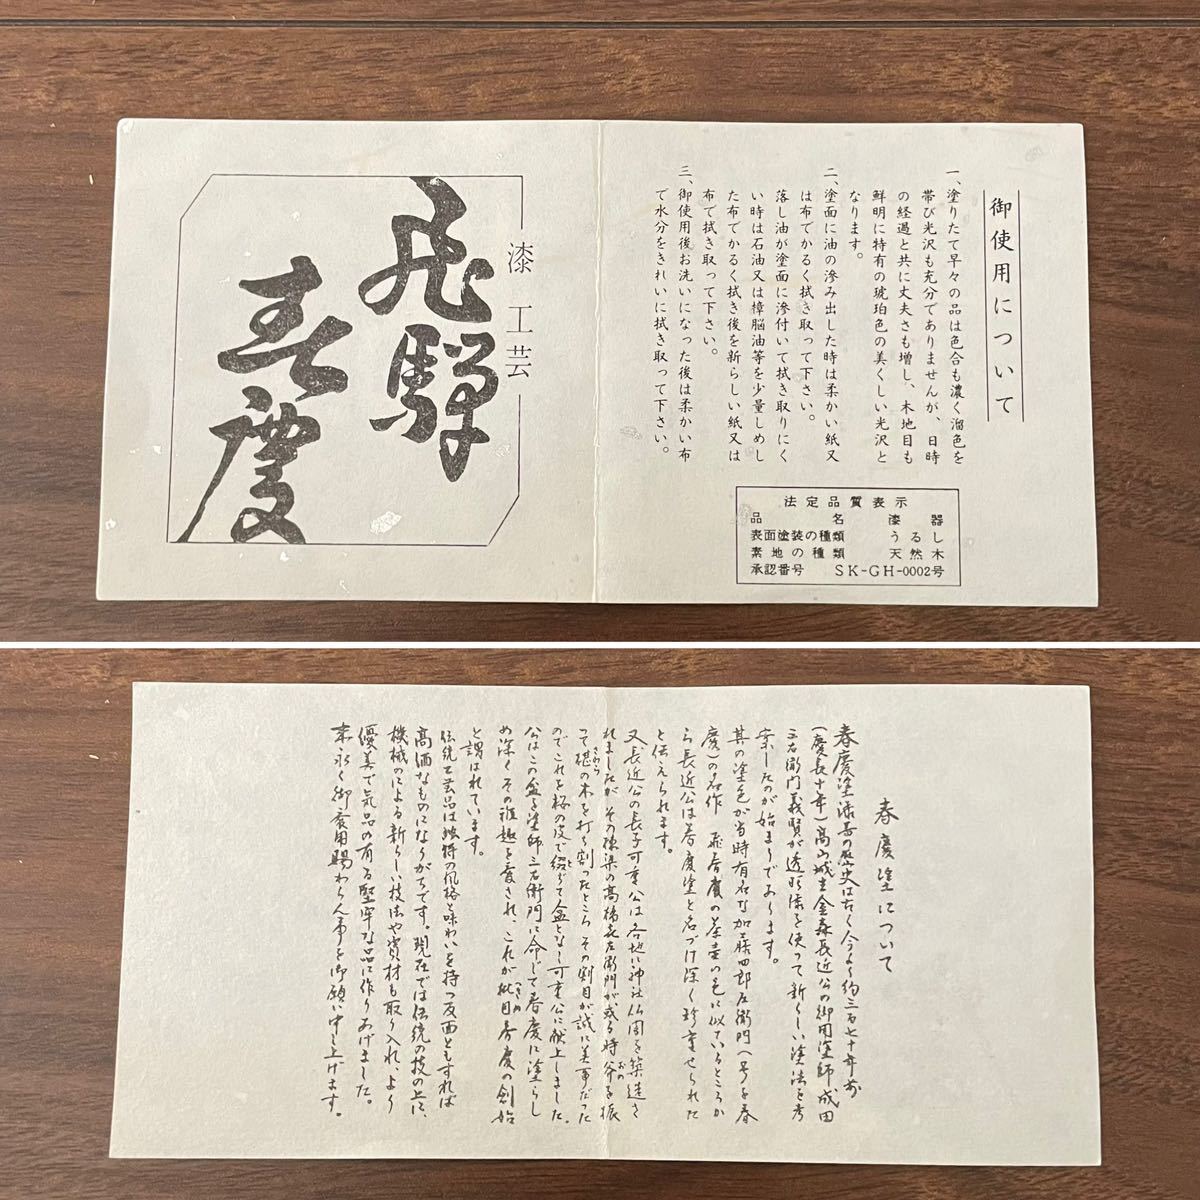 漆工芸
飛騨
春慶
御使用について
一、塗りたて早々の品は色合も濃く溜色を
帯び光沢も充分でありませんが、日時
の経過と共に丈夫さも増し、木地目も
鮮明に特有の琥珀色の美くしい光沢と
なります。
二、塗面に油の滲み出した時は柔かい紙又
は布でかるく拭き取って下さい。
落し油が塗面に滲付いて拭き取りにく
い時は石油又は樟脳油等を少量しめし
た布でかるく拭き後を新らしい紙又は
布で拭き取って下さい。
三、御使用後お洗いになった後は柔かい布
で水分をきれいに拭き取って下さい。
法定品質表示
品名 漆器
表面塗装の種類 うるし
素地の種類 天然木
承認番号 SK-GH-0002号
春慶塗について
春慶塗漆器の歴史は古く今より約三百七十年前
(慶長十年)高山城主金森長近公の御用塗師成田
三右衛門義賢が透形漆を使って新しい塗法を考
案したのが始まりであります。
其の塗色が当時有名な加藤四郎左衛門(号を春
慶)の名作 飛春慶の茶壷の色に似ているところか
ら長近公は春慶塗と名づけ深く珍重せられた
と伝えられます。
又長近公の長子可重公は各地に神社仏閣を築造さ
れましたが その棟梁の高橋喜左衛門が或る時斧を振
って椹の木を打ち割ったところ その割目が誠に美事だった
のでこれを桜の皮で綴じて盆となし可重公に献上しました。
公はこの盆を塗師三右衛門に命じて春慶に塗らし
め深くその雅趣を愛され、これが批目春慶の創始
と謂はれています。
伝統工芸品は独特の風格と味わいを持つ反面ともすれば
高価なものになりがちです。現在では伝統の技の上に、
機械のによる新らしい技法や資材も取り入れ、より
優美で気品の有る堅牢な品に作りあげました。
末永く御愛用賜わらん事を御願い申し上げます。